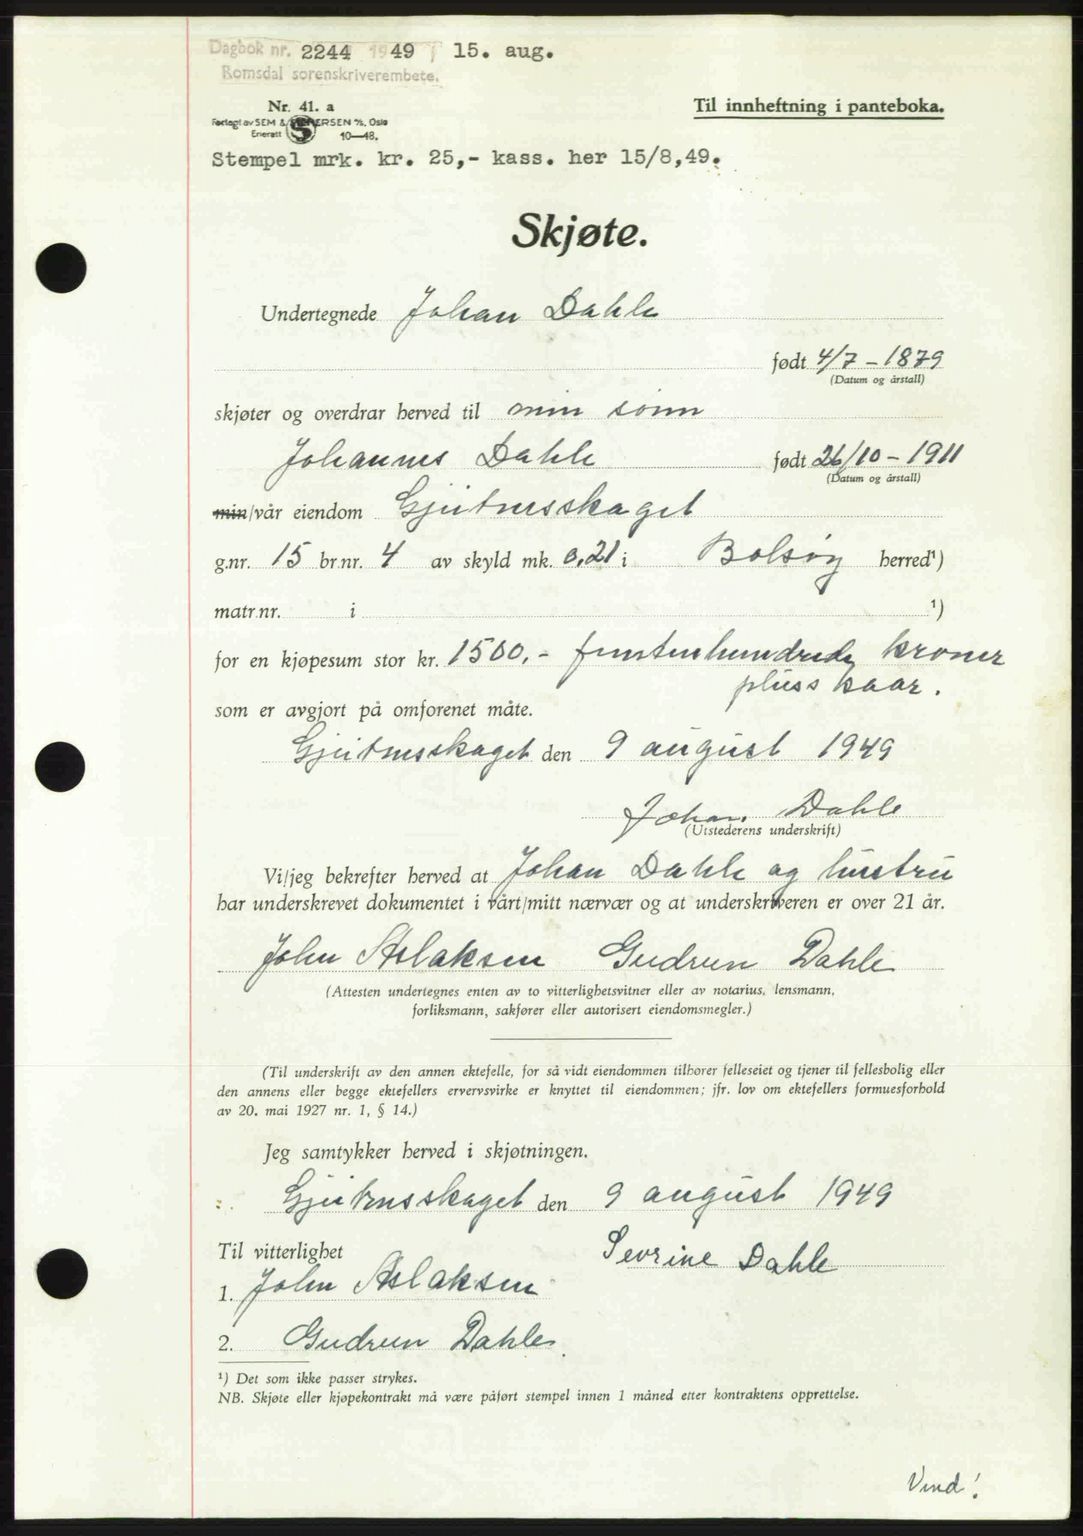 Dagbok nr. 2244 1949 15. aug.
Romsdal sorenskriverembete.
Nr. 41. a
Til innheftning i panteboka.
Forlagt av SEM & STENERSEN A/S, Oslo
Enerett 10—48.
Stempel mrk. kr. 25,- kass. her 15/8,49.
Skjøte.
Undertegnede Johan Dahle
født 4/7 - 1879
(Datum og årstall)
skjøter og overdrar herved til min sønn
Johannes Dahle født 26/10 - 1911
(Datum og årstall)
min/vår eiendom Gjeitnesskaget
g.nr. 15 br.nr. 4 av skyld mk. 0,21 i Bolsøy herred¹)
matr.nr. i ¹)
for en kjøpesum stor kr. 1500,- femtenhundrede kroner
pluss kaar.
som er avgjort på omforenet måte.
Gjeitnesskaget den 9 august 1949
Johan Dahle
(Utstederens underskrift)
Vi/jeg bekrefter herved at Johan Dahle og hustru
har underskrevet dokumentet i vårt/mitt nærvær og at underskriveren er over 21 år.
John Aslaksen Gudrun Dahle
(Attesten undertegnes enten av to vitterlighetsvitner eller av notarius, lensmann,
forliksmann, sakfører eller autorisert eiendomsmegler.)
(Til underskrift av den annen ektefelle, for så vidt eiendommen tilhører felleseiet og tjener til fellesbolig eller
den annens eller begge ektefellers ervervsvirke er knyttet til eiendommen; jfr. lov om ektefellers formuesforhold
av 20. mai 1927 nr. 1, § 14.)
Jeg samtykker herved i skjøtningen.
Gjeitnesskaget den 9 august 1949
Til vitterlighet Sevrine Dahle
1. John Aslaksen
2. Gudrun Dahle.
¹) Det som ikke passer strykes.
NB. Skjøte eller kjøpekontrakt må være påført stempel innen 1 måned etter kontraktens opprettelse.
Vend!